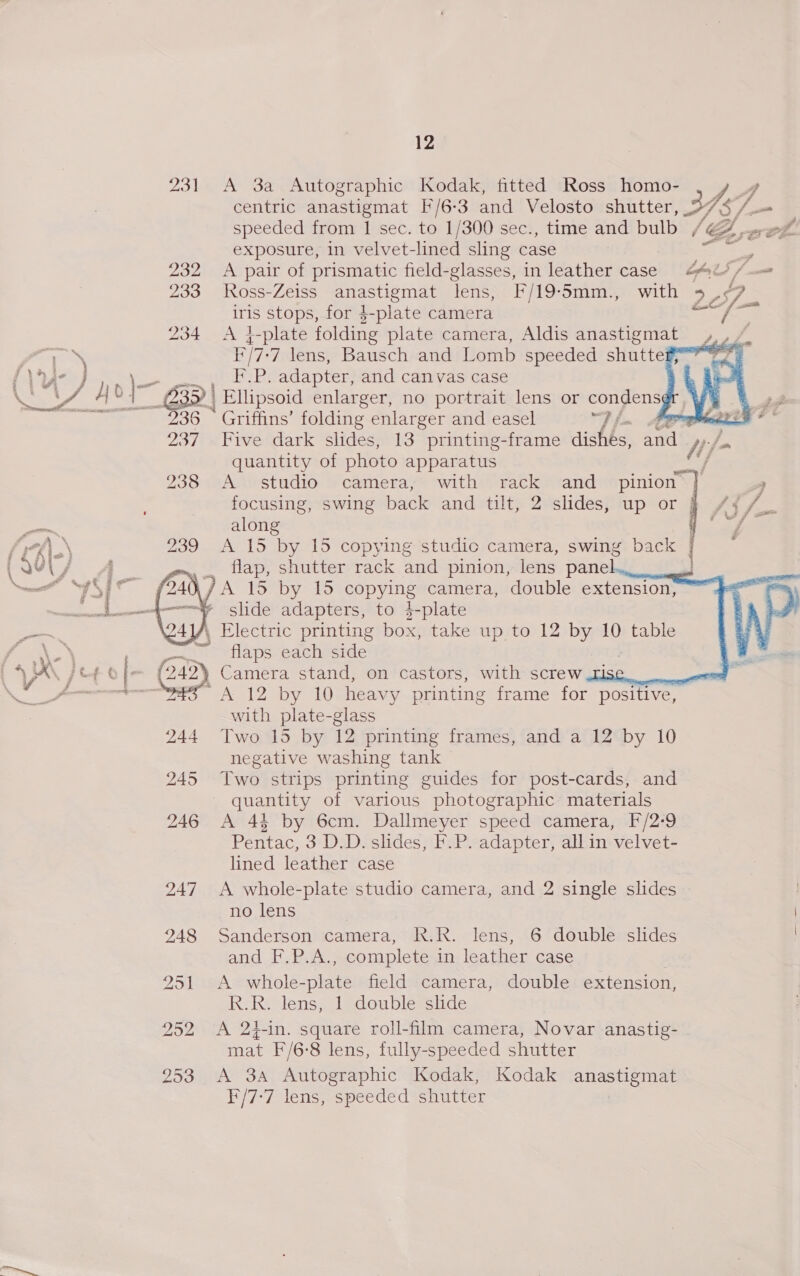 12
231 A 3a Autographic Kodak, fitted Ross homo-
centric anastigmat F/6·3 and Velosto shutter,
speeded from 1 sec. to 1/300 sec., time and bulb
exposure, in velvet-lined sling case
232 A pair of prismatic field-glasses, in leather case
233 Ross-Zeiss anastigmat lens, F/19·5mm., with
iris stops, for ½-plate camera
234 A ¼-plate folding plate camera, Aldis anastigmat
F/7·7 lens, Bausch and Lomb speeded shutter,
F.P. adapter, and canvas case
235 Ellipsoid enlarger, no portrait lens or condenser
236 Griffins' folding enlarger and easel
237 Five dark slides, 13 printing-frame dishes, and
quantity of photo apparatus
238 A studio camera, with rack and pinion
focusing, swing back and tilt, 2 slides, up or
along
239 A 15 by 15 copying studio camera, swing back
flap, shutter rack and pinion, lens panel
240 A 15 by 15 copying camera, double extension,
slide adapters, to ½-plate
241 Electric printing box, take up to 12 by 10 table
flaps each side
242 Camera stand, on castors, with screw rise
243 A 12 by 10 heavy printing frame for positive,
with plate-glass
244 Two 15 by 12 printing frames, and a 12 by 10
negative washing tank
245 Two strips printing guides for post-cards, and
quantity of various photographic materials
246 A 4½ by 6cm. Dallmeyer speed camera, F/2·9
Pentac, 3 D.D. slides, F.P. adapter, all in velvet-
lined leather case
247 A whole-plate studio camera, and 2 single slides
no lens
248 Sanderson camera, R.R. lens, 6 double slides
and F.P.A., complete in leather case
251 A whole-plate field camera, double extension,
R.R. lens, 1 double slide
252 A 2¼-in. square roll-film camera, Novar anastig-
mat F/6·8 lens, fully-speeded shutter
253 A 3A Autographic Kodak, Kodak anastigmat
F/7·7 lens, speeded shutter